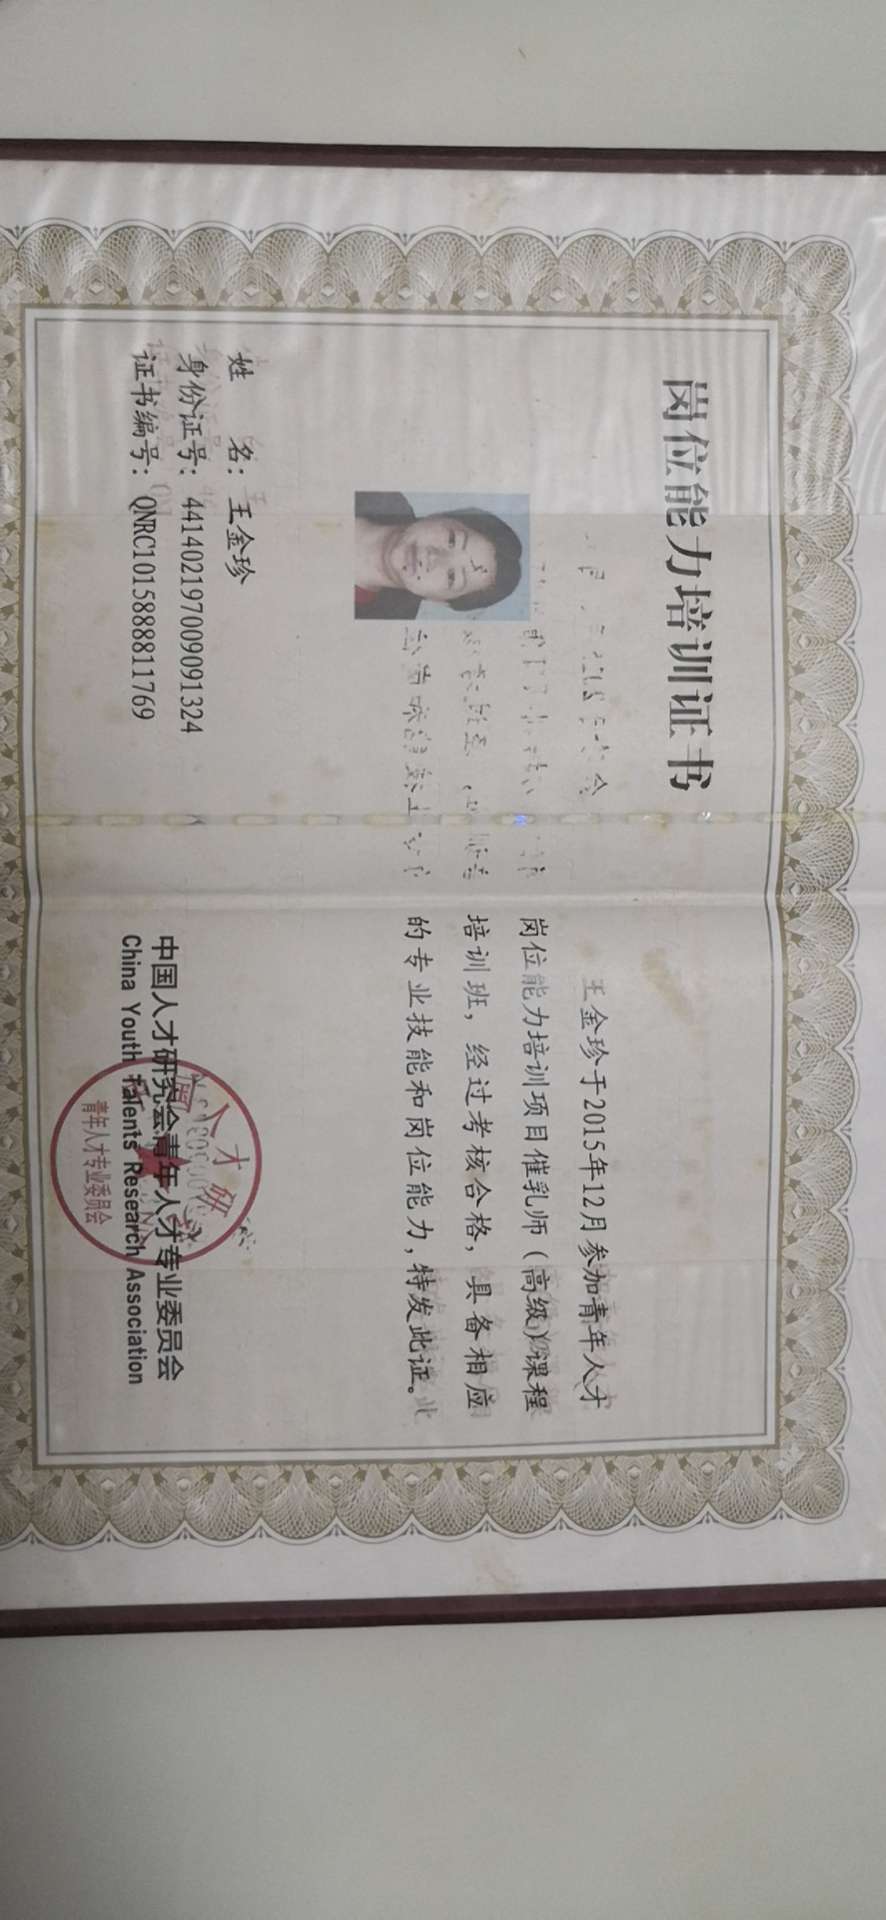 岗位能力培训证书
姓 名：王金珍
身份证号：441402197009091324
证书编号：QNRC1015888811769
王金珍于2015年12月参加青年人才
岗位能力培训项目催乳师（高级）课程
培训班，经过考核合格，具备相应
的专业技能和岗位能力，特发此证。
中国人才研究会青年人才专业委员会
China Youth Talents Research Association
青年人才专业委员会